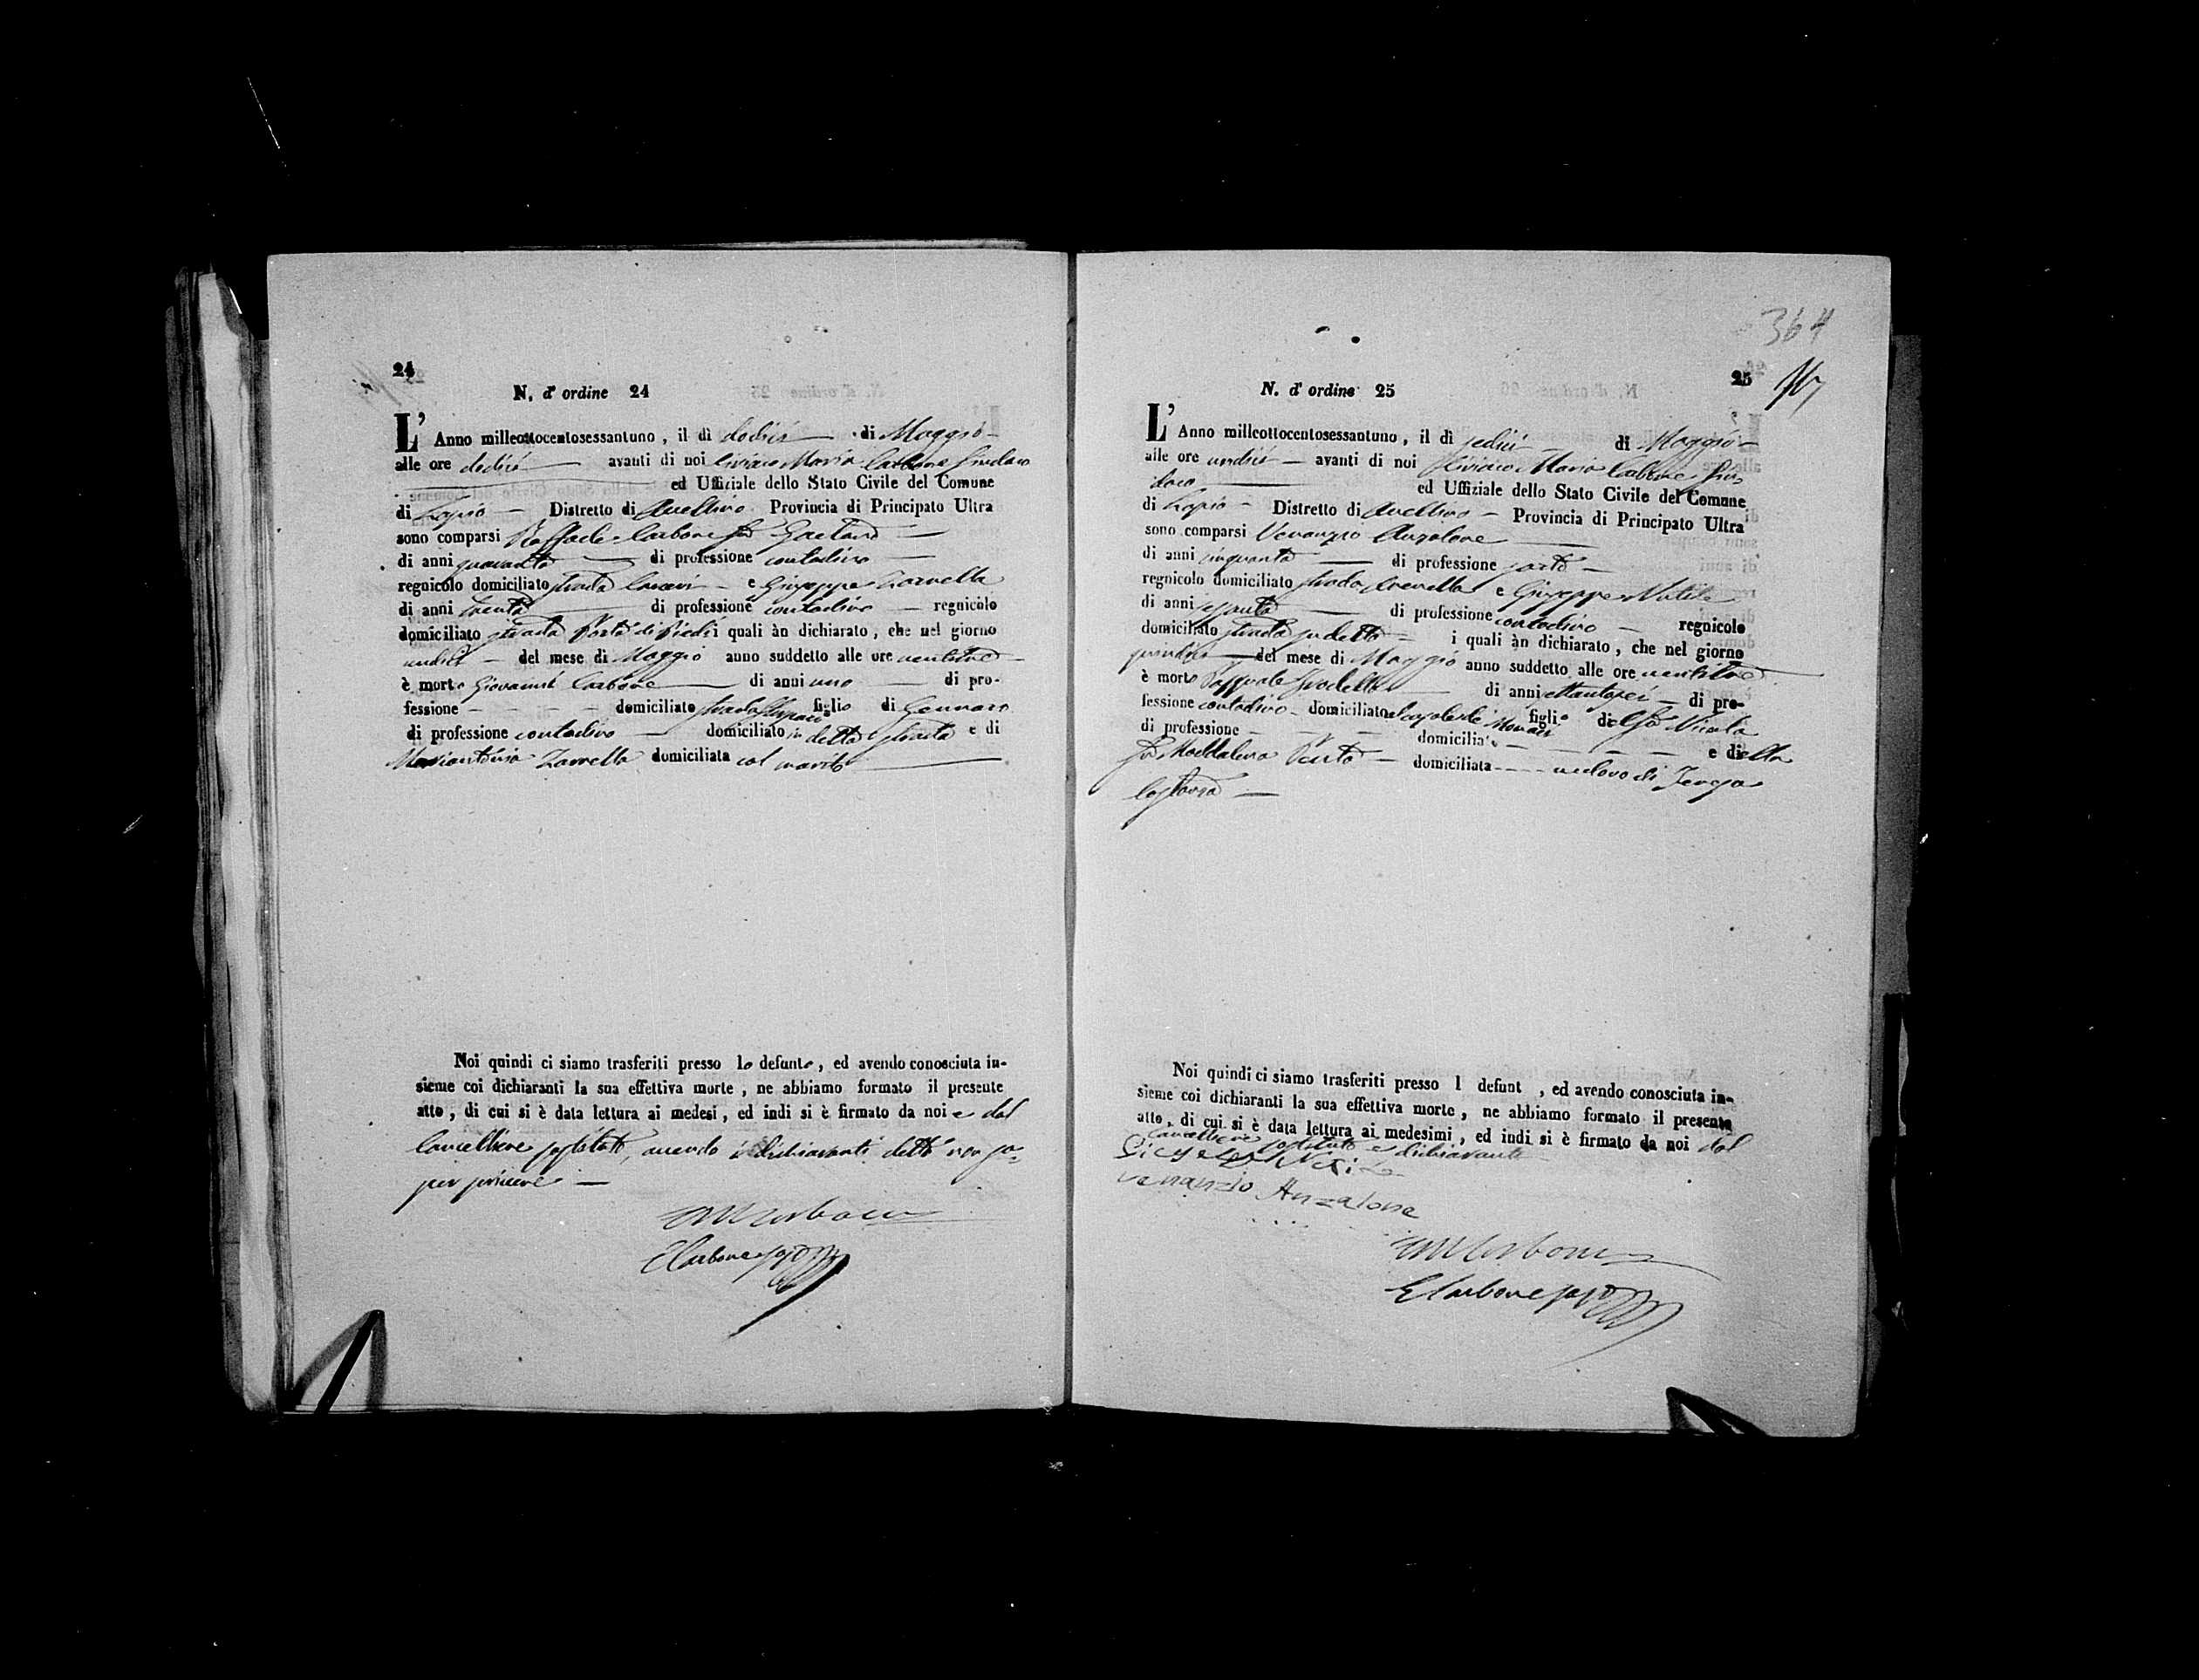 24
N. d' ordine 24
L' Anno milleottocentosessantuno, il dì dodici di Maggio
alle ore dodici avanti di noi Ciriaco Maria Carbone Sindaco
ed Uffiziale dello Stato Civile del Comune
di Lapio Distretto di Avellino Provincia di Principato Ultra
sono comparsi Raffaele Carbone fu Gaetano
di anni quaranta di professione contadino
regnicolo domiciliato strada e Giuseppe Zarrella
di anni trenta di professione contadino regnicolo
domiciliato strada Porta di Piedi i quali àn dichiarato, che nel giorno
undici del mese di Maggio anno suddetto alle ore ventitre
è morto Giovanni Carbone di anni uno di pro-
fessione domiciliato strada figlio di Gennaro
di professione contadino domiciliato in detta strada e di
Mariantonia Zarrella domiciliata col marito
Noi quindi ci siamo trasferiti presso lo defunto, ed avendo conosciuta in-
sieme coi dichiaranti la sua effettiva morte, ne abbiamo formato il presente
atto, di cui si è data lettura ai medesi, ed indi si è firmato da noi e dal
Cancelliere sostituto, avendo i dichiaranti detto non sa-
per scrivere
CMCarbone
ECarbone sosto
364
25
N. d' ordine 25
L' Anno milleottocentosessantuno, il dì sedici di Maggio
alle ore undici avanti di noi Ciriaco Maria Carbone Sin-
daco ed Uffiziale dello Stato Civile del Comune
di Lapio Distretto di Avellino Provincia di Principato Ultra
sono comparsi Venanzio Anzalone
di anni cinquanta di professione sarto
regnicolo domiciliato strada e Giuseppe Natile
di anni sessanta di professione contadino regnicolo
domiciliato strada sudetta i quali àn dichiarato, che nel giorno
quindici del mese di Maggio anno suddetto alle ore ventitre
è morto Pasquale di anni ottantasei di pro-
fessione contadino domiciliato figlio del fu Nicola
di professione domiciliato e della
fu Maddalena domiciliata vedovo di Teresa
Noi quindi ci siamo trasferiti presso l defunt , ed avendo conosciuta in-
sieme coi dichiaranti la sua effettiva morte, ne abbiamo formato il presente
atto, di cui si è data lettura ai medesimi, ed indi si è firmato da noi dal
Cancelliere sostituto e dichiaranti
venanzio Anzalone
CMCarbone
ECarbone sosto